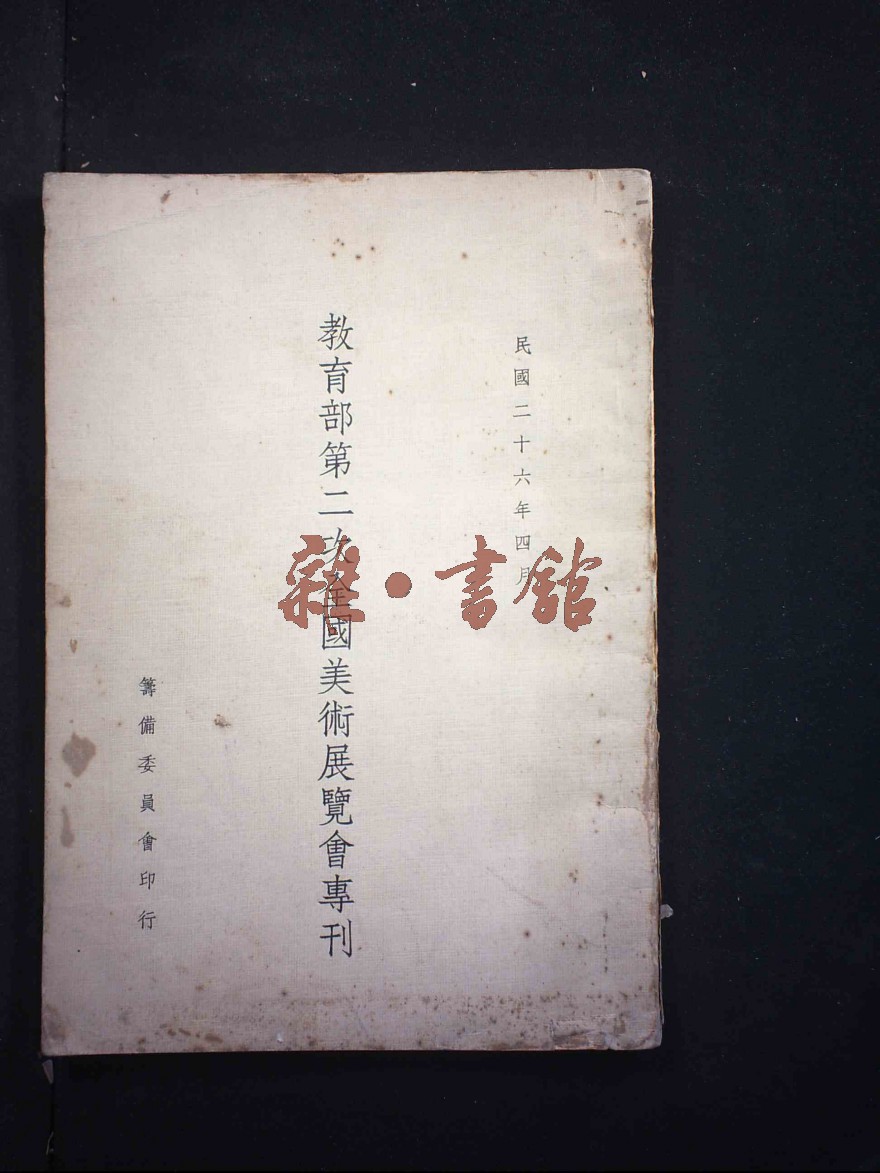 民國二十六年四月
教育部第二次全國美術展覽會專刊
籌備委員會印行
雜·書館